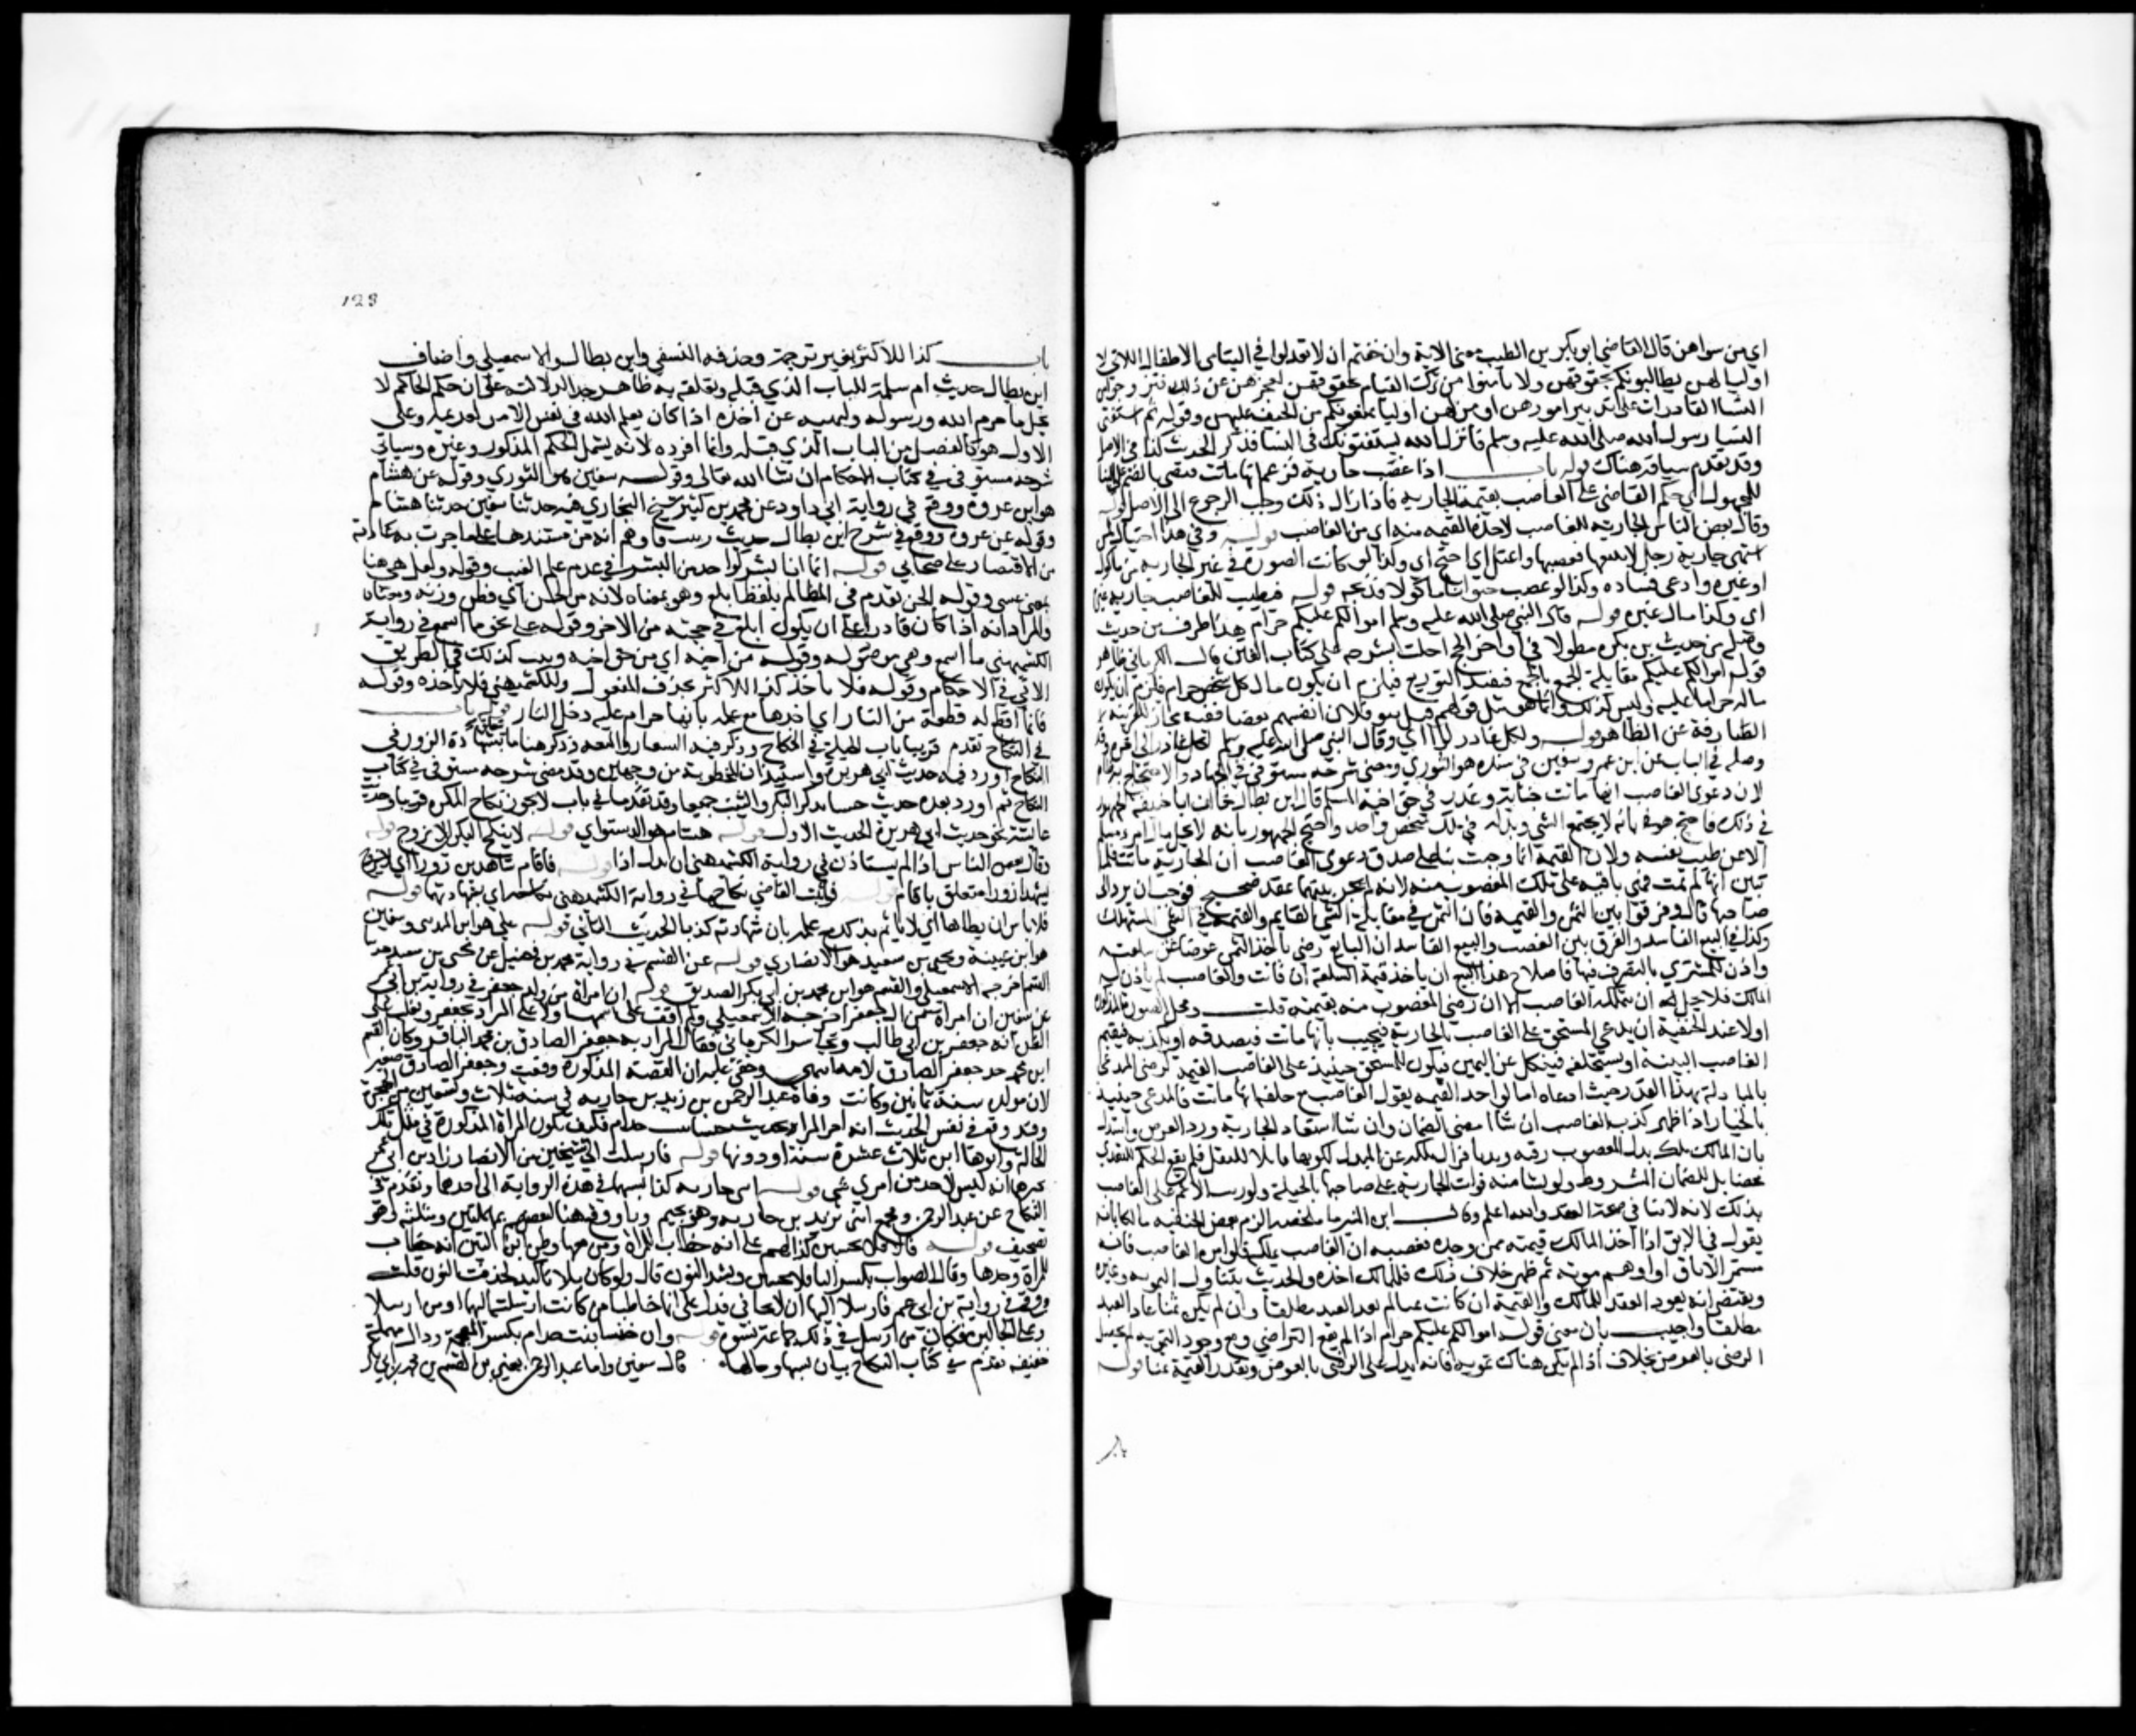 اي من سواهن قال القاضي ابو بكر بن الطيب معنى الاية وان خفتم ان لا تعدلوا في اليتامى الاطفال اللاتي لا
اوليا لهن يطالبونكم بحقوقهن ولا تامنوا من ترك القيام بحقوقهن لعجزهن عن ذلك فتزوجوا من
النسا القادرات على تدبير امورهن او من لهن اوليا يمنعونكم من الحيف عليهن وقوله ثم استفتى
الناس رسول الله صلى الله عليه وسلم فانزل الله يستفتونك في النسا فذكر الحديث كذا في الاصل
وقد تقدم سياقه هناك قوله باب اذا غصب جارية فزعم انها ماتت فقضى بالضم على البنا
للمجهول اي حكم القاضي على الغاصب بقيمة الجارية فاذا زال ذلك وجب الرجوع الى الاصل قوله
وقال بعض الناس الجارية للغاصب لاخذه القيمة منه اي من الغاصب قوله وفي هذا احتيال لمن
اشتهى جارية رجل لا يبيعها فغصبها واعتل اي احتج اي وكذا لو كانت الصورة في غير الجارية من ماكول
او غيره وادعى فساده وكذا لو غصب حيوانا ماكولا فذبحه قوله فيطيب للغاصب جارية غيره
اي وكذا مال غيره قوله قال النبي صلى الله عليه وسلم اموالكم عليكم حرام هذا طرف من حديث
وصله من حديث بن بكرة مطولا في اواخر الحج احلت بشرحه على كتاب الفتن قال الكرماني ظاهر
قوله اموالكم عليكم مقابلة الجمع بالجمع فيفيد التوزيع فيلزم ان يكون مال كل شخص حرام فلزم ان يكون
ماله حراما عليه وليس كذلك وانما هو مثل قولهم قتل بنو فلان انفسهم بعضا ففيه مجاز للقرينة
الصارفة عن الظاهر قوله ولكل غادر لوا اي وقال النبي صلى الله عليه وسلم لكل غادر الى اخره وقد
وصله في الباب عن ابن عمر وسفين في سنده هو الثوري ومضى شرحه مستوفى في الجهاد والاحتجاج به ظاهر
لان دعوى الغاصب انها ماتت خيانة وغدر في حق اخيه المسلم قال ابن بطال خالف ابا حنيفة الجمهور
في ذلك فاحتج هو بانه لا يجتمع الشي وبدله في ملك شخص واحد واحتج الجمهور بانه لا يحل مال امرء مسلم
الا عن طيب نفسه ولان القيمة انما وجبت بنا على صدق دعوى الغاصب ان الجارية ماتت فلما
تبين انها لم تمت فهي باقية على ملك المغصوب منه لانه لم يجر بينهما عقد صحيح فوجب ان ترد الى
صاحبها قال وفرقوا بين الثمن والقيمة فان الثمن في مقابلة الشي القايم والقيمة في الشي المستهلك
وكذا في البيع الفاسد والفرق بين الغصب والبيع الفاسد ان البايع رضي باخذ الثمن عوضا عن سلعته
واذن للمشتري بالتصرف فيها فاصلاح هذا البيع ان ياخذ قيمة السلعة ان فاتت والغاصب لم ياذن له
المالك فلا يحل له ان يتملكه الغاصب الا ان رضي المغصوب منه بقيمته قلت ومحل الصورة المذكورة
اولا عند الحنفية ان يدعي المستحق على الغاصب بالجارية فيجيب بانها ماتت فيصدقه او يكذبه فيقيم
الغاصب البينة او يستحلفه فينكل عن اليمين فيكون للمستحق حينئذ على الغاصب القيمة لرضى المدعي
بالمبادلة بهذا القدر حيث ادعاه اما لو اخذ القيمة بقول الغاصب مع حلفه انها ماتت فالمدعي حينئذ
بالخيار اذا ظهر كذب الغاصب ان شا امضى الضمان وان شا استعاد الجارية ورد العوض واستدل
بان المالك ملك بدل المغصوب رقبة ويدا فزال ملكه عن المبدل لكونه قابلا للنقل فلم يقع الحكم للتعدي
محضا بل للضمان المشروط ولو نشا منه فوات الجارية على صاحبها بالحيلة ولو رتب الاثم على الغاصب
بذلك لانه لا ينافي صحة العقد والله اعلم وقال ابن المنير ما ملخصه الزم بعض الحنفية مالكا بانه
يقول في الابق اذا اخذ المالك قيمته ممن وجده بغصبه ان الغاصب يملكه قالوا من الغاصب فانه
مستمر الاباق او اوهم موته ثم ظهر خلاف ذلك فللمالك اخذه والحديث يتناول التمويه وغيره
ويقتضي انه يعود العقد للمالك والقيمة ان كانت ثمنا لم يعد العبد مطلقا وان لم يكن ثمنا عاد العبد
مطلقا واجيب بان معنى قوله اموالكم عليكم حرام اذا لم يقع التراضي ومع وجود التمويه لم يحصل
الرضى بالعوض بخلاف اذا لم يكن هناك تمويه فانه يدل على الرضى بالعوض وتقدر القيمة ثمنا قوله
123
باب كذا للاكثر بغير ترجمة وحذفه النسفي وابن بطال والاسمعيلي واضاف
ابن بطال حديث ام سلمة للباب الذي قبله وتعلقه به ظاهر جدا لدلالته على ان حكم الحاكم لا
يحل ما حرم الله ورسوله ولنهيه عن اخذه اذا كان يعلم الله في نفس الامر لغريمه وعلى
الاول هو كالفصل من الباب الذي قبله وانما افرده لانه يشمل الحكم المذكور وغيره وسياتي
شرحه مستوفى في كتاب الاحكام ان شا الله تعالى وقوله سفين هو الثوري وقوله عن هشام
هو ابن عروة ووقع في رواية ابي داود عن محمد بن كثير شيخ البخاري فيه حدثنا سفين حدثنا هشام
وقوله عن عروة ووقع في شرح ابن بطال حديث زينب فاوهم انه من مستندها على ما جرت به عادته
من الاقتصار على صحابي قوله انما انا بشر كواحد من البشر في عدم علم الغيب وقوله ولعل هي هنا
بمعنى عسى وقوله الحن تقدم في المظالم بلفظ ابلغ وهو بمعناه لانه من لحن اي فطن وزنه ومعناه
والمراد انه اذا كان قادرا على ان يكون ابلغ في حجته من الاخر وقوله على نحو ما اسمع في رواية
الكشميهني ما اسمع وهي موصولة وقوله من اخيه اي من حق اخيه وثبت كذلك في الطريق
الاتي في الاحكام وقوله فلا ياخذ كذا للاكثر بحذف المفعول وللكشميهني فلا ياخذه وقوله
فانما اقطع له قطعة من النار اي اخذها مع علمه بانها حرام عليه دخل النار قوله باب
في النكاح تقدم قريبا باب الحيلة في النكاح وذكر فيه الشغار والمتعة وذكر هنا ما يتعلق بشهادة الزور في
النكاح اورد فيه حديث ابي هريرة واستيذان المخطوبة من وجهين وقد مضى شرحه مستوفى في كتاب
النكاح ثم اورد بعده حديث خنسا بذكر البكر والثيب جميعا وقد تقدما في باب لا يجوز نكاح المكره قريبا وحديث
عائشة نحو حديث ابي هريرة الحديث الاول قوله هشام هو الدستواي قوله لا ينكح البكر الا بزوج قوله
وقال بعض الناس اذا لم يستاذن في رواية الكشميهني ان بدل اذا قوله فاقام شاهدين زورا اي
يشهدا زورا متعلق باقام قوله فاثبت القاضي نكاحها في رواية الكشميهني نكاحه اي بشهادتهما قوله
فلا باس ان يطاها اي لا ياثم بذلك مع علمه بان شهادتهم كذبا الحديث الثاني قوله علي هو ابن المديني وسفين
هو ابن عيينة ويحيى بن سعيد هو الانصاري قوله عن القسم في رواية محمد بن فضيل عن يحيى بن سعيد حدثنا
القسم اخرجه الاسمعيلي والقسم هو ابن محمد بن ابي بكر الصديق قوله ان امراة من ولد جعفر في رواية بن ابي عمر
عن سفين ان امراة من ال جعفر اخرجه الاسمعيلي ولم اقف على اسمها ولا على المراد بجعفر ويغلب على
الظن انه جعفر بن ابي طالب وتجاسر الكرماني فقال المراد به جعفر الصادق بن محمد الباقر وكان القسم
ابن محمد جد جعفر الصادق لامه انتهى وخفي عليه ان القصة المذكورة وقعت وجعفر الصادق صغير
لان مولده سنة ثمانين وكانت وفاة عبد الرحمن بن زيد بن جارية في سنة ثلاث وتسعين من الهجرة
وقد وقع في نفس الحديث انه اخر المراة بحديث خنساء بنت خدام فكيف تكون المراة المذكورة في مثل تلك
الحالة وابوها ابن ثلاث عشرة سنة او دونها قوله فارسلت الى شيخين من الانصار زاد بن ابي عمر
تخبرها انه ليس لاحد من امري شي قوله ابني جارية كذا نسبهما في هذه الرواية الى جدهما وتقدم في
النكاح عن عبد الرحمن ومجمع ابني يزيد بن جارية وهو بجيم وياء ووقع هنا لبعضهم بمهملتين ومثلثة وهو
تصحيف قوله قال فلا تخشين كذا لهم على انه خطاب للمراة ومن معها وظن ابن التين انه خطاب
للمراة وحدها وقال الصواب بكسر الياء فلا تخشين وبشد النون قال ولو كان بلا تاكيد لحذفت النون قلت
ووقع في رواية بن ابي عمر فارسلا اليها ان لا تخافي فدل على انهما خاطبا من كانت ارسلتها اليهما او من ارسلا
وعلى الحالين فكان من ارسل في ذلك جماعة نسوة قوله وان خنسا بنت خدام بكسر المعجمة ودال مهملة
خفيفة تقدم في كتاب النكاح بيان نسبها وحالها قال سفين واما عبد الرحمن يعني بن القسم بن محمد بن ابي بكر